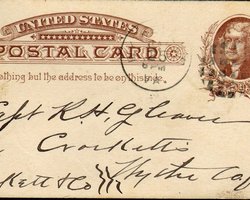 UNITED STATES
POSTAL CARD
othing but the address to be on this side.
apt R. H. Gleaves
Crocketts
Wythe Co
kett & Co